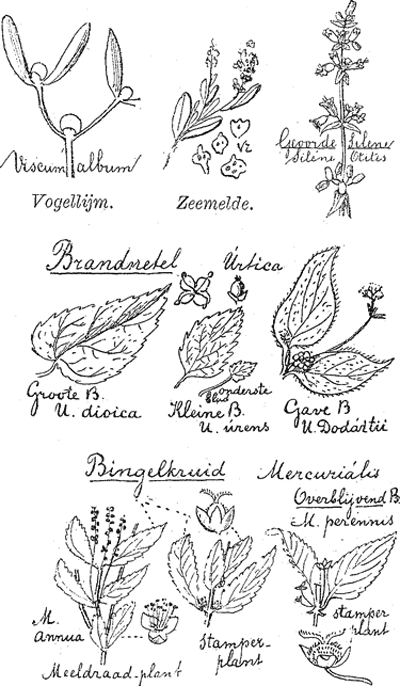 Viscum album
Vogellijm.
Zeemelde.
Geoorde Silene
Siléne Otites
Brandnetel Úrtica
Groote B.
U. dioica
Kleine B.
U. úrens
onderste
blad
Gave B
U. Dodártii
Bingelkruid Mercuriális
Overblijvend B.
M. perennis
M.
annua
Meeldraad-plant
Stamper-
plant
stamper
plant